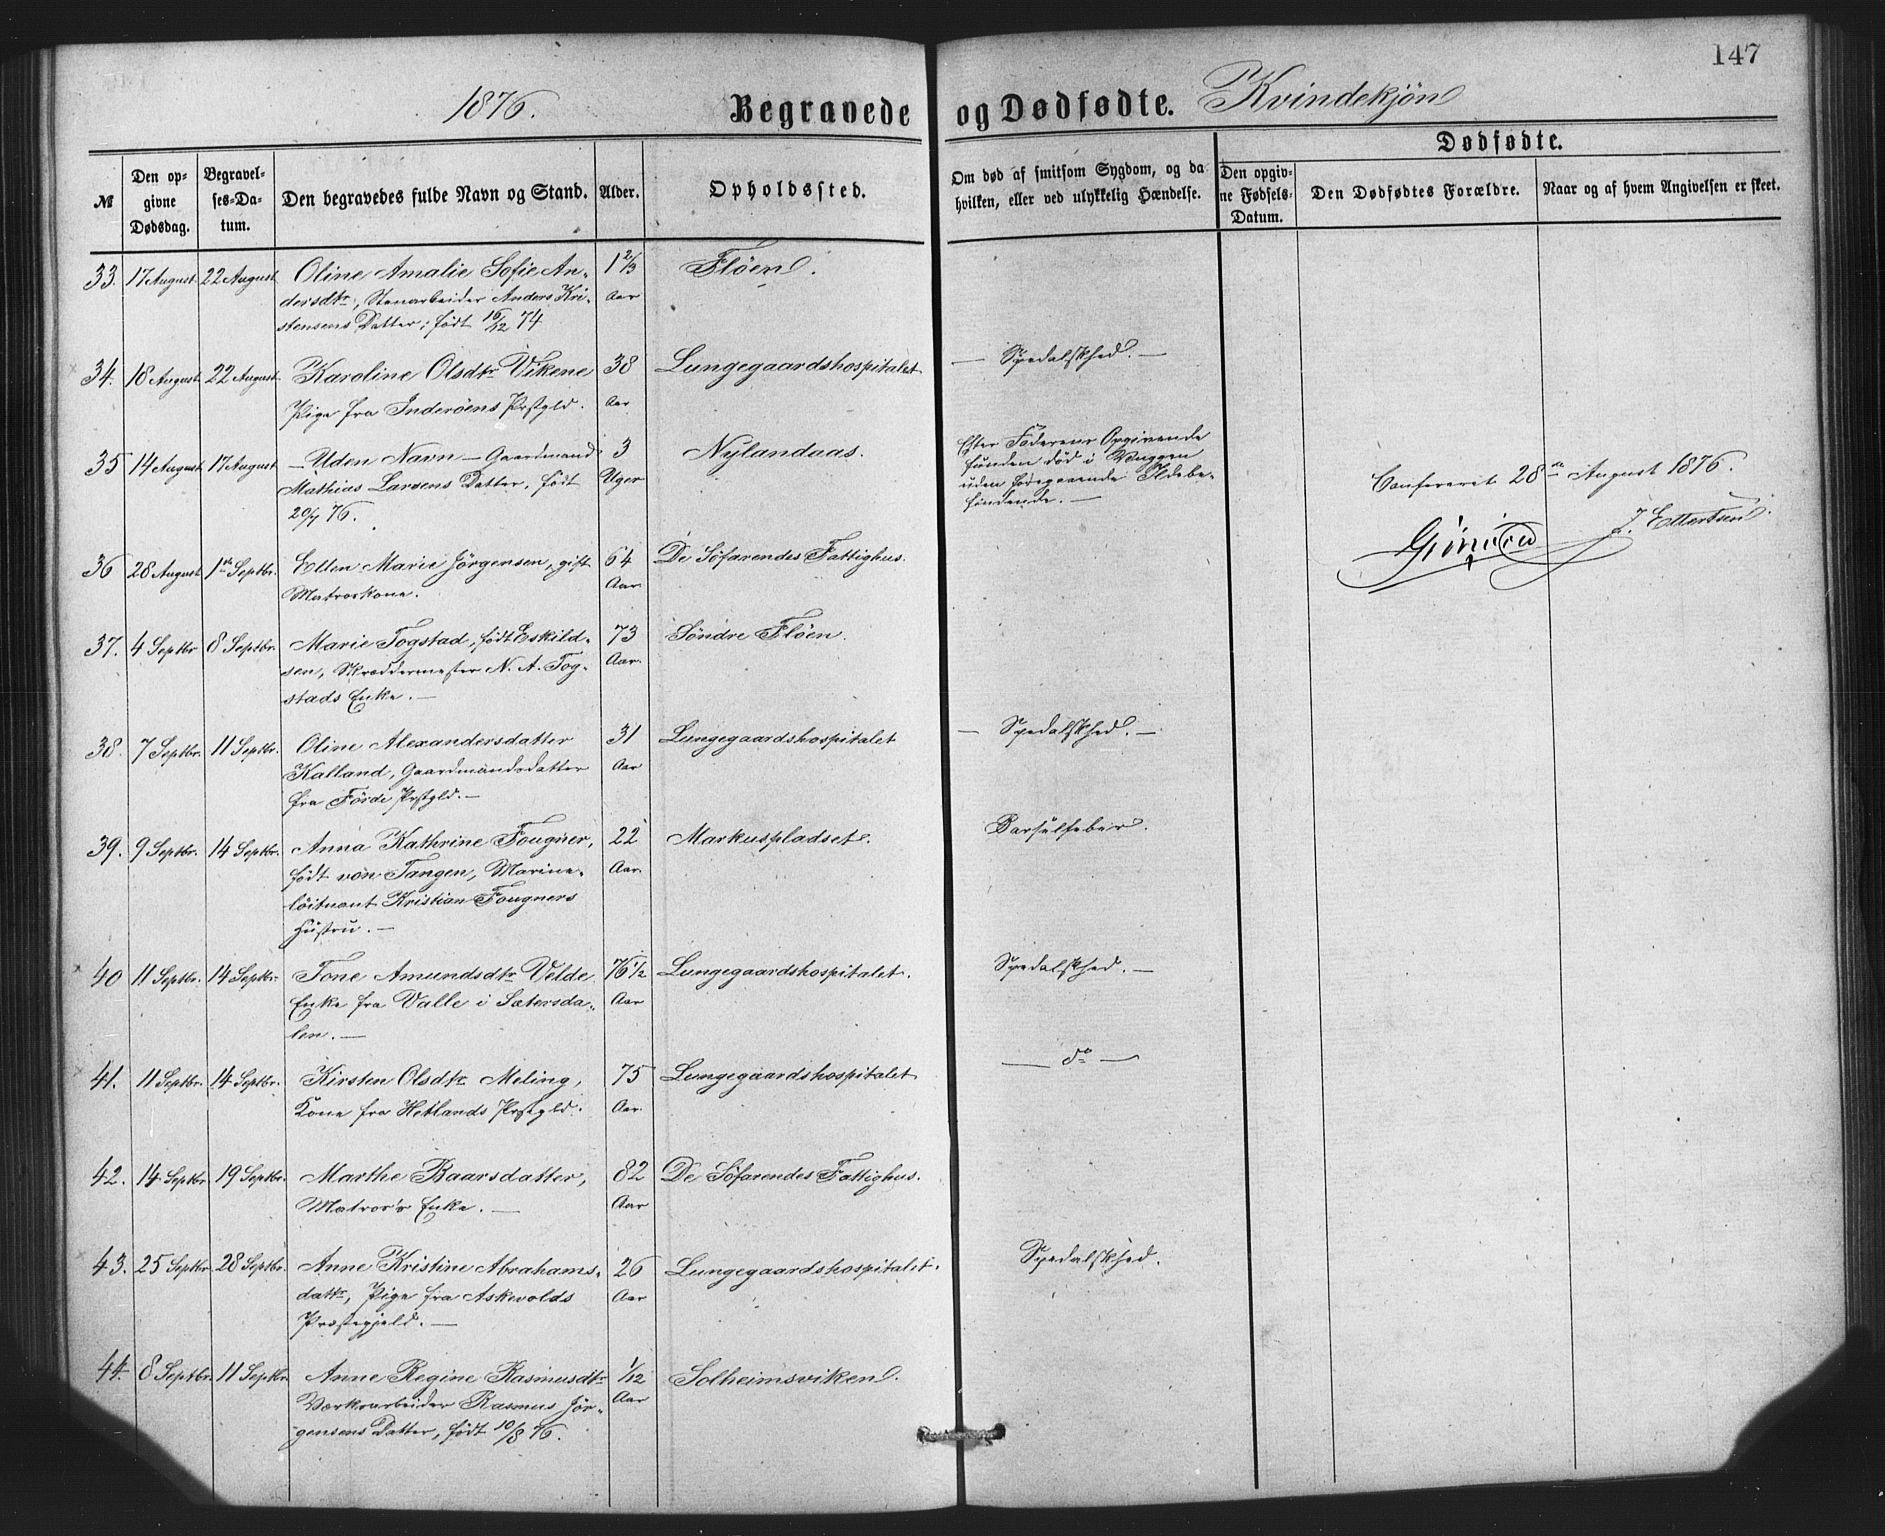 147
1876. Begravede og Dødfødte. Kvindekjøn
№ Den opgivne Dødsdag. Begravelses-Datum. Den begravedes fulde Navn og Stand. Alder. Opholdssted. Om død af smitsom Sygdom, og da hvilken, eller ved ulykkelig Hændelse. Dødfødte. Den opgivne Fødsels-Datum. Den Dødfødtes Forældre. Naar og af hvem Angivelsen er skeet.
33. 17 August 22 August Oline Amalie Sofie An- 1 2/3 Fløen.
dersdtr, Stenarbeider Anders Kri- Aar
stensens Datter; født 16/12 74
34. 18 August 22 August Karoline Olsdtr Vikene 38 Lungegaardshospitalet — Spedalskhed. —
Pige fra Inderøens Prstgld. Aar
35 14 August 17 August — Uden Navn — Gaardmand 3 Nylandaas. Efter Faderens Opgivende
Mathias Larsens Datter, født Uger funden død i Vuggen
20/7 76. uden foregaaende Ildebe-
findende. —
Confereret 28de August 1876.
J. Ellertsen
36 28 August 1ste Septbr. Ellen Marie Jørgensen, gift 64 De Søfarendes Fattighus.
Matroskone. Aar
37. 4 Septbr 8 Septbr. Marie Fogstad, født Eskild- 73 Søndre Fløen.
sen, Skræddermester N. A. Fog- Aar.
stads Enke. —
38. 7 Septbr. 11 Septbr. Oline Alexandersdatter 31 Lungegaardshospitalet — Spedalskhed. —
Kalland, Gaardmandsdatter Aar
fra Førde Prstgld. —
39. 9 Septbr. 14 Septbr. Anna Kathrine Fougner, 22 Markuspladset. Barselfeber.
født von Tangen, Marine- Aar.
løitnant Kristian Fougners
Hustru. —
40 11 Septbr. 14 Septbr. Tone Amundsdtr Velde 76 1/2 Lungegaardshospitalet. Spedalskhed. —
Enke fra Valle i Sætersda- Aar
len. —
41. 11 Septbr. 14 Septbr. Kirsten Olsdtr Meling, 75 Lungegaardshospitalet — do —
Kone fra Hetlands Prstgld. Aar.
42. 14 Septbr 19 Septbr. Marthe Baarsdatter, 82 De Søfarendes Fattighus.
Matros's Enke. — Aar
43. 25 Septbr 28 Septbr. Anne Kristine Abrahams- 26 Lungegaardshospitalet. Spedalskhed.
datr, Pige fra Askevolds Aar
Præstegjeld. —
44. 8 Septbr. 11 Septbr. Anne Regine Rasmusdtr 1/12 Solheimsviken.
Værksarbeider Rasmus Jør- Aar
gensens Datter, født 10/8 76.